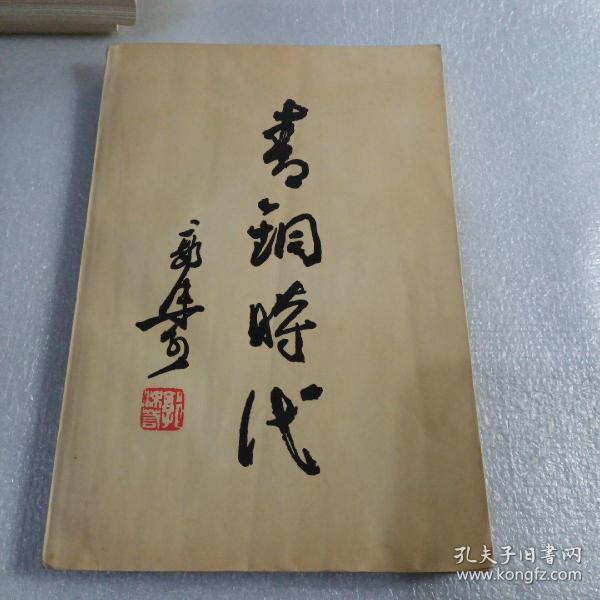 青銅時代
郭沫若
郭沫若
孔夫子旧書网
www.kongfz.com